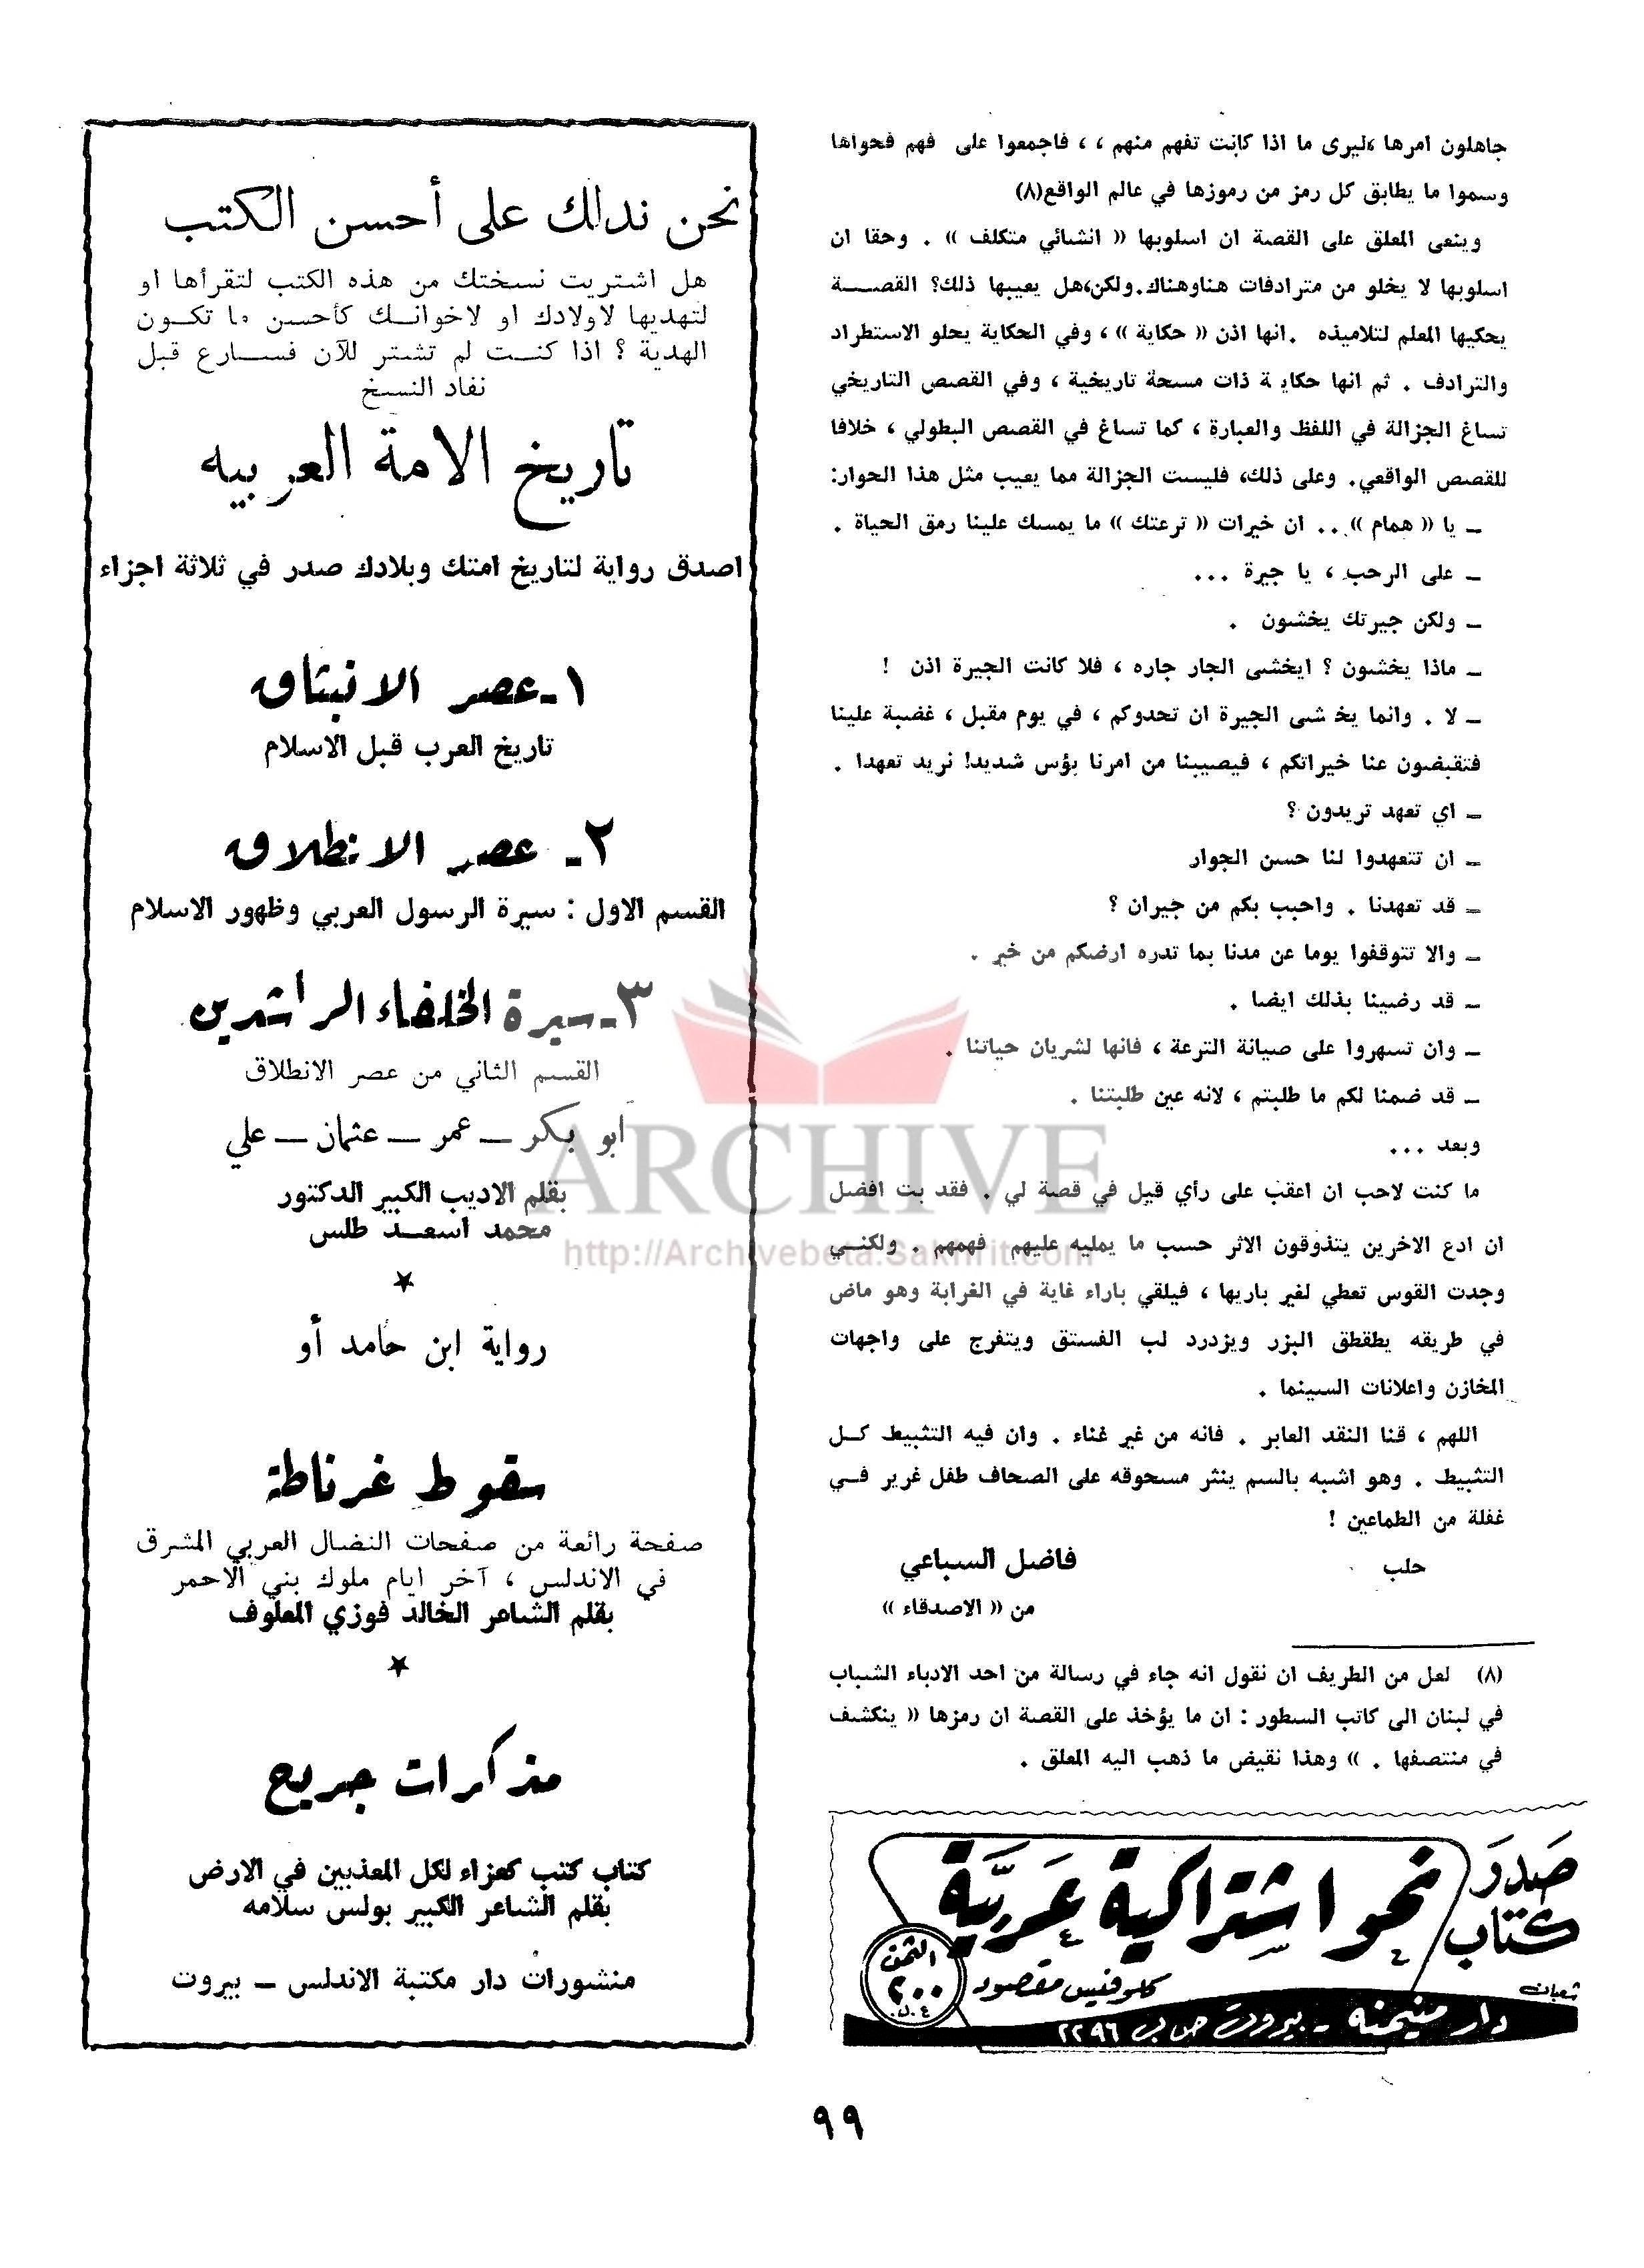 جاهلون امرها ،ليرى ما اذا كانت تفهم منهم ، ، فاجمعوا على فهم فحواها
وسموا ما يطابق كل رمز من رموزها في عالم الواقع(٨)
وينعى المعلق على القصة ان اسلوبها « انشائي متكلف » . وحقا ان
اسلوبها لا يخلو من مترادفات هناوهناك.ولكن،هل يعيبها ذلك؟ القصــة
يحكيها المعلم لتلاميذه .انها اذن « حكاية » ، وفي الحكاية يحلو الاستطراد
والترادف . ثم انها حكاية ذات مسحة تاريخية ، وفي القصص التاريخي
تساغ الجزالة في اللفظ والعبارة ، كما تساغ في القصص البطولي ، خلافا
للقصص الواقعي. وعلى ذلك، فليست الجزالة مما يعيب مثل هذا الحوار:
ـ يا « همام » .. ان خيرات « ترعتك » ما يمسك علينا رمق الحياة .
ـ على الرحب ، يا جيرة ...
ـ ولكن جيرتك يخشون .
ـ ماذا يخشون ؟ ايخشى الجار جاره ، فلا كانت الجيرة اذن !
ـ لا . وانما يخشى الجيرة ان تحدوكم ، في يوم مقبل ، غضبة علينا
فتقبضون عنا خيراتكم ، فيصيبنا من امرنا بؤس شديد! نريد تعهدا .
ـ اي تعهد تريدون ؟
ـ ان تتعهدوا لنا حسن الجوار
ـ قد تعهدنا . واحبب بكم من جيران ؟
ـ والا تتوقفوا يوما عن مدنا بما تدره ارضكم من خير .
ـ قد رضينا بذلك ايضا .
ـ وان تسهروا على صيانة الترعة ، فانها لشريان حياتنا .
ـ قد ضمنا لكم ما طلبتم ، لانه عين طلبتنا .
وبعد ...
ما كنت لاحب ان اعقب على رأي قيل في قصة لي . فقد بت افضل
ان ادع الاخرين يتذوقون الاثر حسب ما يمليه عليهم فهمهم . ولكنــي
وجدت القوس تعطي لغير باريها ، فيلقي باراء غاية في الغرابة وهو ماض
في طريقه يطقطق البزر ويزدرد لب الفستق ويتفرج على واجهات
المخازن واعلانات السينما .
اللهم ، قنا النقد العابر . فانه من غير غناء . وان فيه التثبيط كــل
التثبيط . وهو اشبه بالسم ينثر مسحوقه على الصحاف طفل غرير فــي
غفلة من الطماعين !
حلب
فاضل السباعي
من « الاصدقاء »
(٨) لعل من الطريف ان نقول انه جاء في رسالة من احد الادباء الشباب
في لبنان الى كاتب السطور : ان ما يؤخذ على القصة ان رمزها « ينكشف
في منتصفها . » وهذا نقيض ما ذهب اليه المعلق .
صَدَرَ
كتاب
نحو اشتراكية عَربيّة
كلوفيس مقصود
الثمن
٢٠٠
ق.ل.
شعبان
دار منيمنه - بيروت ص ب ٢٢٩٦
نحن ندلك على أحسن الكتب
هل اشتريت نسختك من هذه الكتب لتقرأها او
لتهديها لاولادك او لاخوانــك كأحسن ما تكــون
الهدية ؟ اذا كنــت لم تشتر للآن فســارع قبل
نفاد النسخ
تاريخ الامة العربيه
اصدق رواية لتاريخ امتك وبلادك صدر في ثلاثة اجزاء
١ـ عصر الانبثاق
تاريخ العرب قبل الاسلام
٢ـ عصر الانطلاق
القسم الاول : سيرة الرسول العربي وظهور الاسلام
٣ـ سيرة الخلفاء الراشدين
القسم الثاني من عصر الانطلاق
ابو بكر ــ عمر ــ عثمان ــ علي
بقلم الاديب الكبير الدكتور
محمد اسعــد طلس
رواية ابن حامد أو
سقوط غرناطة
صفحة رائعة من صفحات النضال العربي المشرق
في الاندلس ، آخر ايام ملوك بني الاحمر
بقلم الشاعر الخالد فوزي المعلوف
مذكرات جريح
كتاب كتب كعزاء لكل المعذبين في الارض
بقلم الشاعر الكبير بولس سلامه
منشورات دار مكتبة الاندلس ــ بيروت
ARCHIVE
http://Archivebeta.Sakhrit.com
٩٩